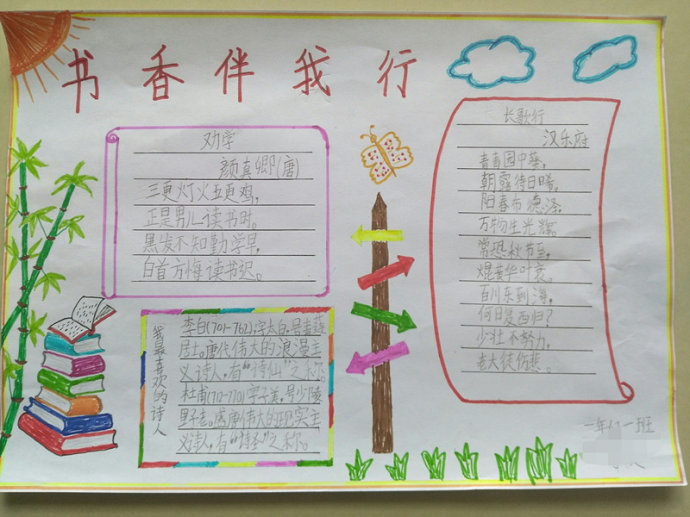 书香伴我行
劝学
颜真卿(唐)
三更灯火五更鸡,
正是男儿读书时。
黑发不知勤学早,
白首方悔读书迟。
我最喜欢的诗人
李白(701-762),字太白,号青莲
居士。唐代伟大的浪漫主
义诗人,有“诗仙”之称
杜甫(712-770)字子美,号少陵
野老。唐伟大的现实主
义诗人,有“诗圣”之称。
长歌行
汉乐府
青青园中葵,
朝露待日晞。
阳春布德泽,
万物生光辉。
常恐秋节至,
焜黄华叶衰。
百川东到海,
何日复西归?
少壮不努力,
老大徒伤悲。
二年仁一班